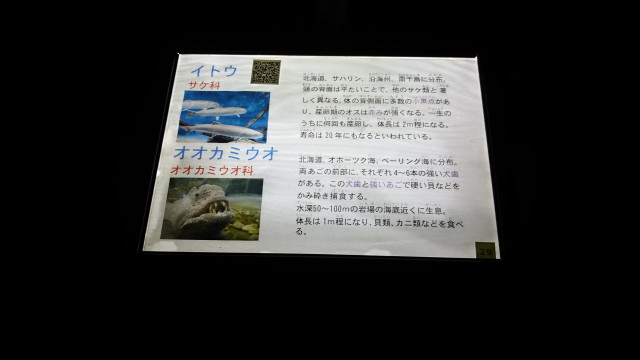 イトウ
サケ科
北海道、サハリン、沿海州、南千島に分布。
頭の背面は平たいことで、他のサケ類と著
しく異なる。体の背側面に多数の小黒点があ
り、産卵期のオスは赤みが強くなる。一生の
うちに何回も産卵し、体長は2m程になる。
寿命は20年にもなるといわれている。
オオカミウオ
オオカミウオ科
北海道、オホーツク海、ベーリング海に分布。
両あごの前部に、それぞれ4～6本の強い犬歯
がある。この犬歯と強いあごで硬い貝などを
かみ砕き捕食する。
水深50～100mの岩場の海底近くに生息。
体長は1m程になり、貝類、カニ類などを食べ
る。